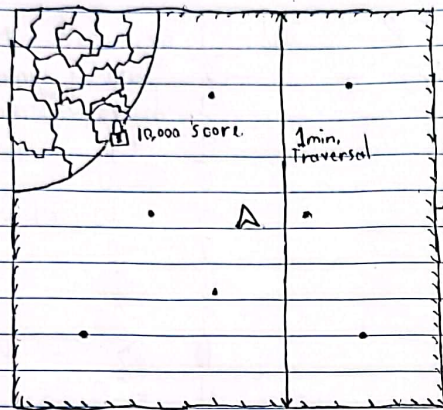 10,000 Score.
1min,
Traversal